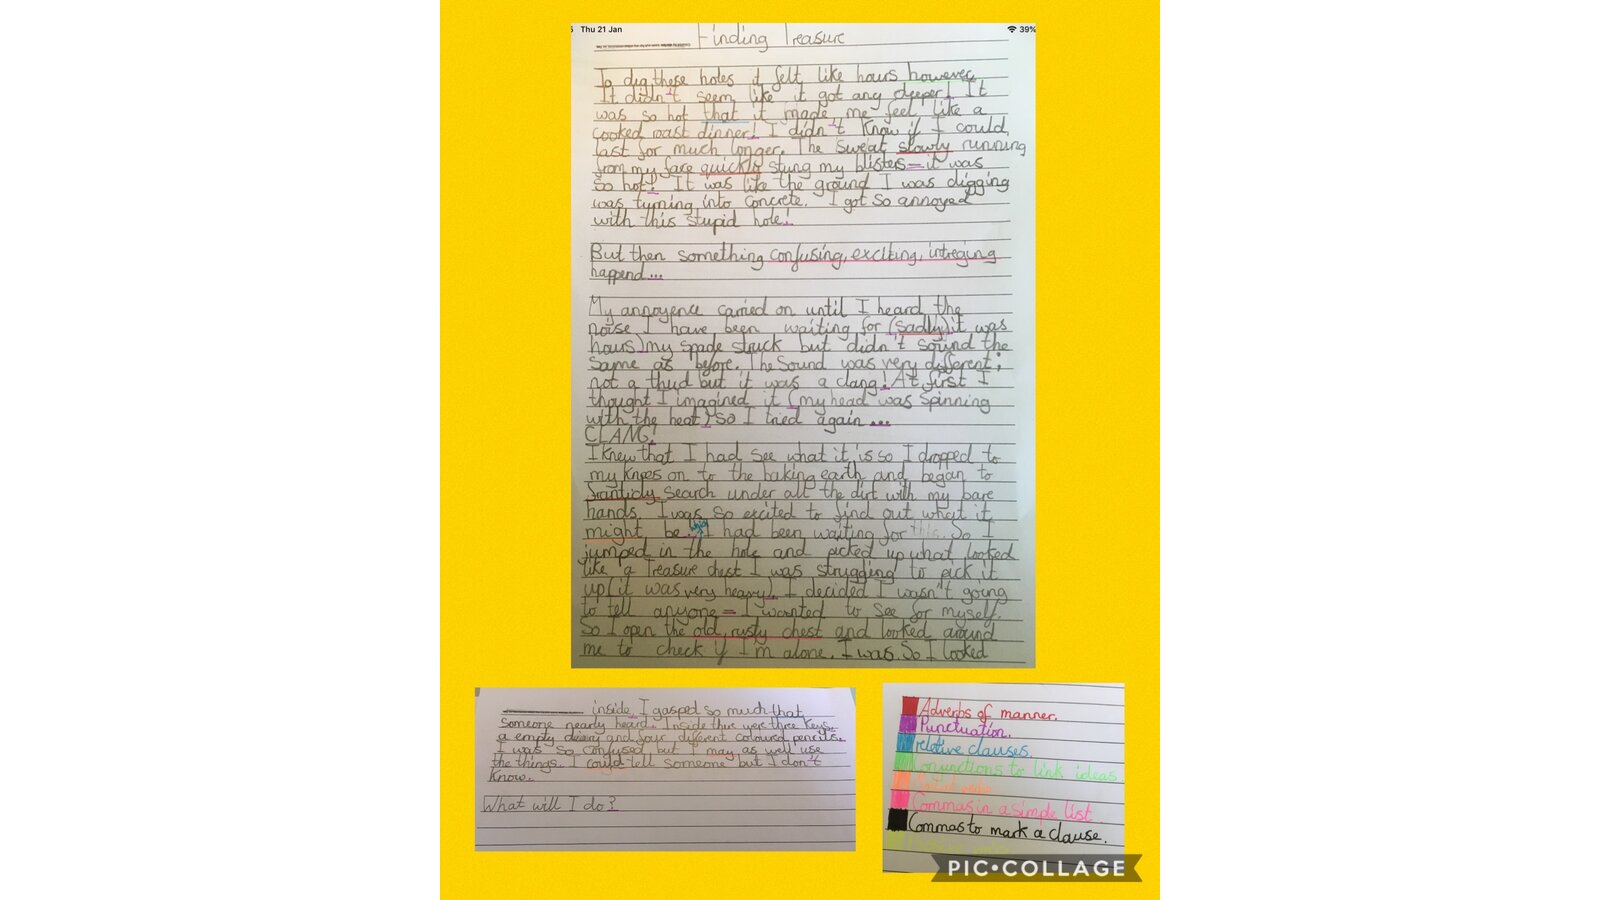 Thu 21 Jan
39%
Finding Treasure
To dig these holes it felt like hours however
It didn't seem like it got any deeper! It
was so hot that it made me feel like a
cooked roast dinner! I didn't know if I could
last for much longer. The sweat slowly running
from my face quickly stung my blisters - it was
so hot! It was like the ground I was digging
was turning into concrete. I got so annoyed
with this stupid hole!
But then something confusing, exciting, intreging
happend...
My annoyence carried on until I heard the
noise I have been waiting for (sadly it was
hours) my spade struck but didn't sound the
same as before. The sound was very different;
not a thud but it was a clang! At first I
thought I imagined it (my head was spinning
with the heat) so I tried again...
CLANG!
I knew that I had see what it is so I dropped to
my knees on to the baking earth and began to
franticly search under all the dirt with my bare
hands. I was so excited to find out what it
might be. I had been waiting for this. So I
jumped in the hole and picked up what looked
like a Treasure chest I was struggling to pick it
up (it was very heavy). I decided I wasn't going
to tell anyone - I wanted to see for myself.
So I open the old, rusty chest and looked around
me to check if I'm alone. I was. So I looked
inside, I gasped so much that
someone nearly heard. Inside there were three keys,
a empty and four different coloured pencils.
I was so confused but I may as well use
the things. I could tell someone but I don't
know.
What will I do?
Adverbs of manner.
Punctuation.
relative clauses.
Conjunctions to link ideas
Commas in a simple list.
Commas to mark a clause.
PIC•COLLAGE